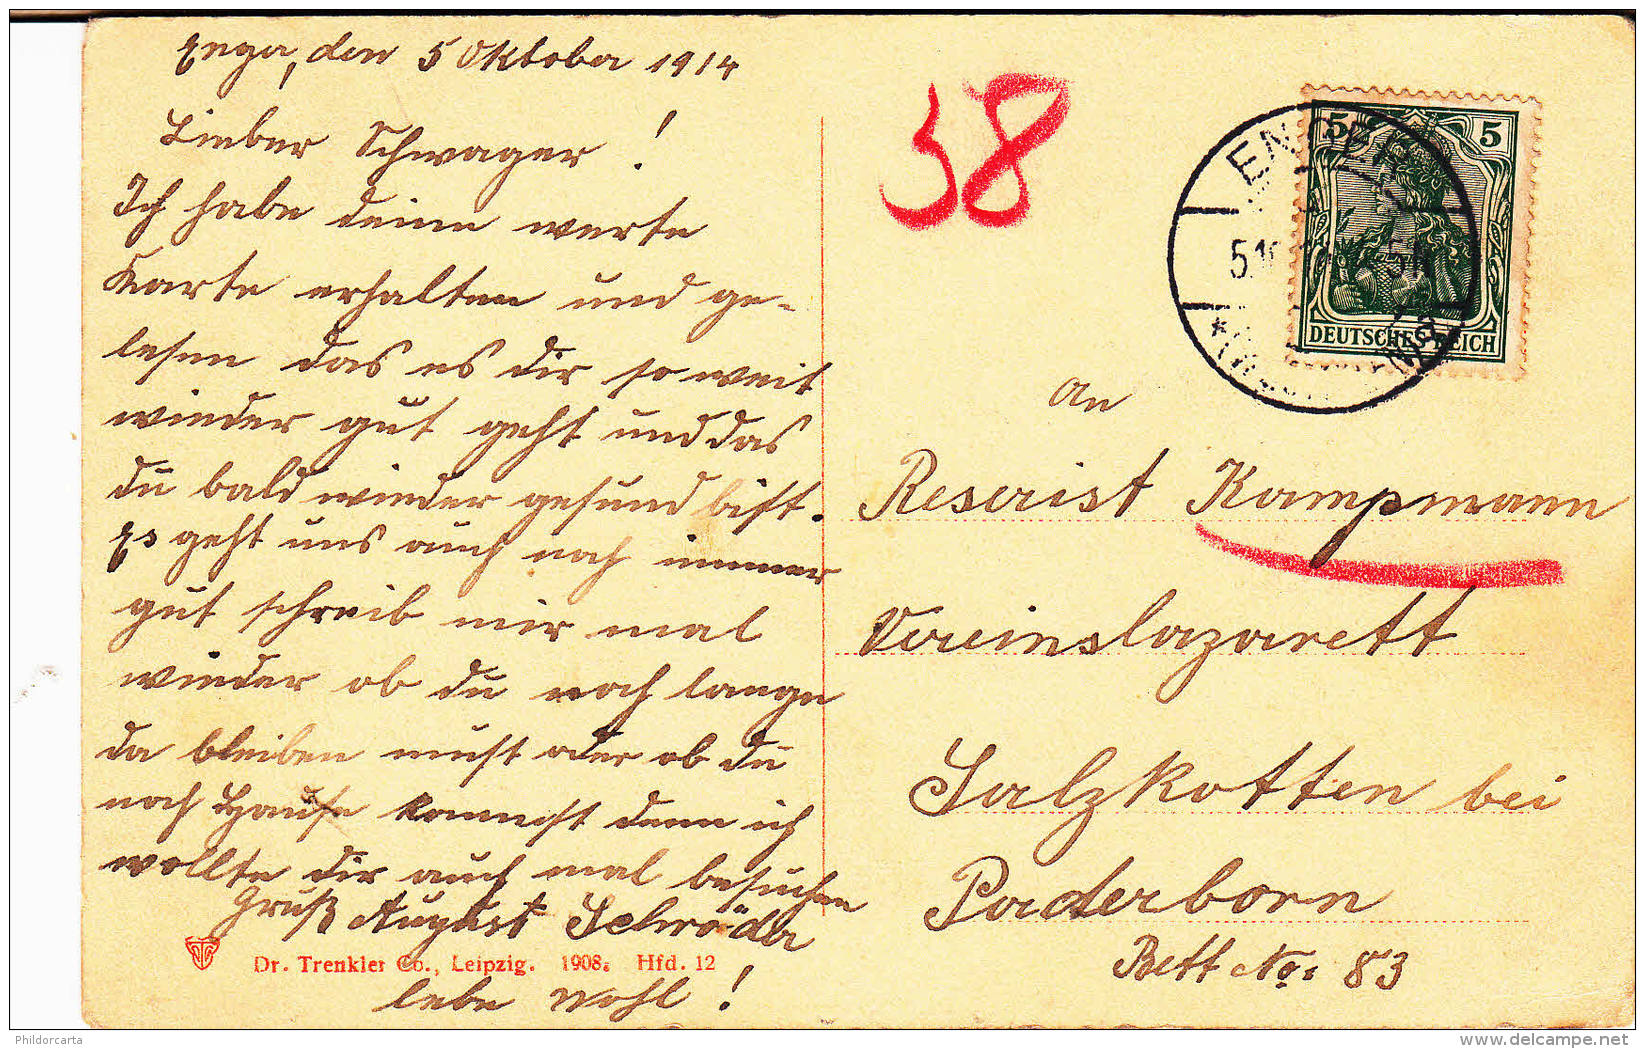 Enger, den 5 Oktober 1914
Lieber Schwager!
Ich habe deine werte
Karte erhalten und ge-
lesen das es dir so weit
wieder gut geht und das
du bald wieder gesund bist.
Es geht uns auch noch immer
gut schreib mir mal
wieder ob du noch lange
da bleiben must oder ob du
nach Hause kommst denn ich
wollte dir auch mal besuchen
Gruß August Schröder
lebe wohl!
Dr. Trenkler Co., Leipzig. 1908. Hfd. 12
38
5 5
DEUTSCHES REICH
ENGER
5.10
An
Reserist Kampmann
Vereinslazarett
Salzkotten bei
Paderborn
Bett No: 83
Phildorcarta
delcampe.net